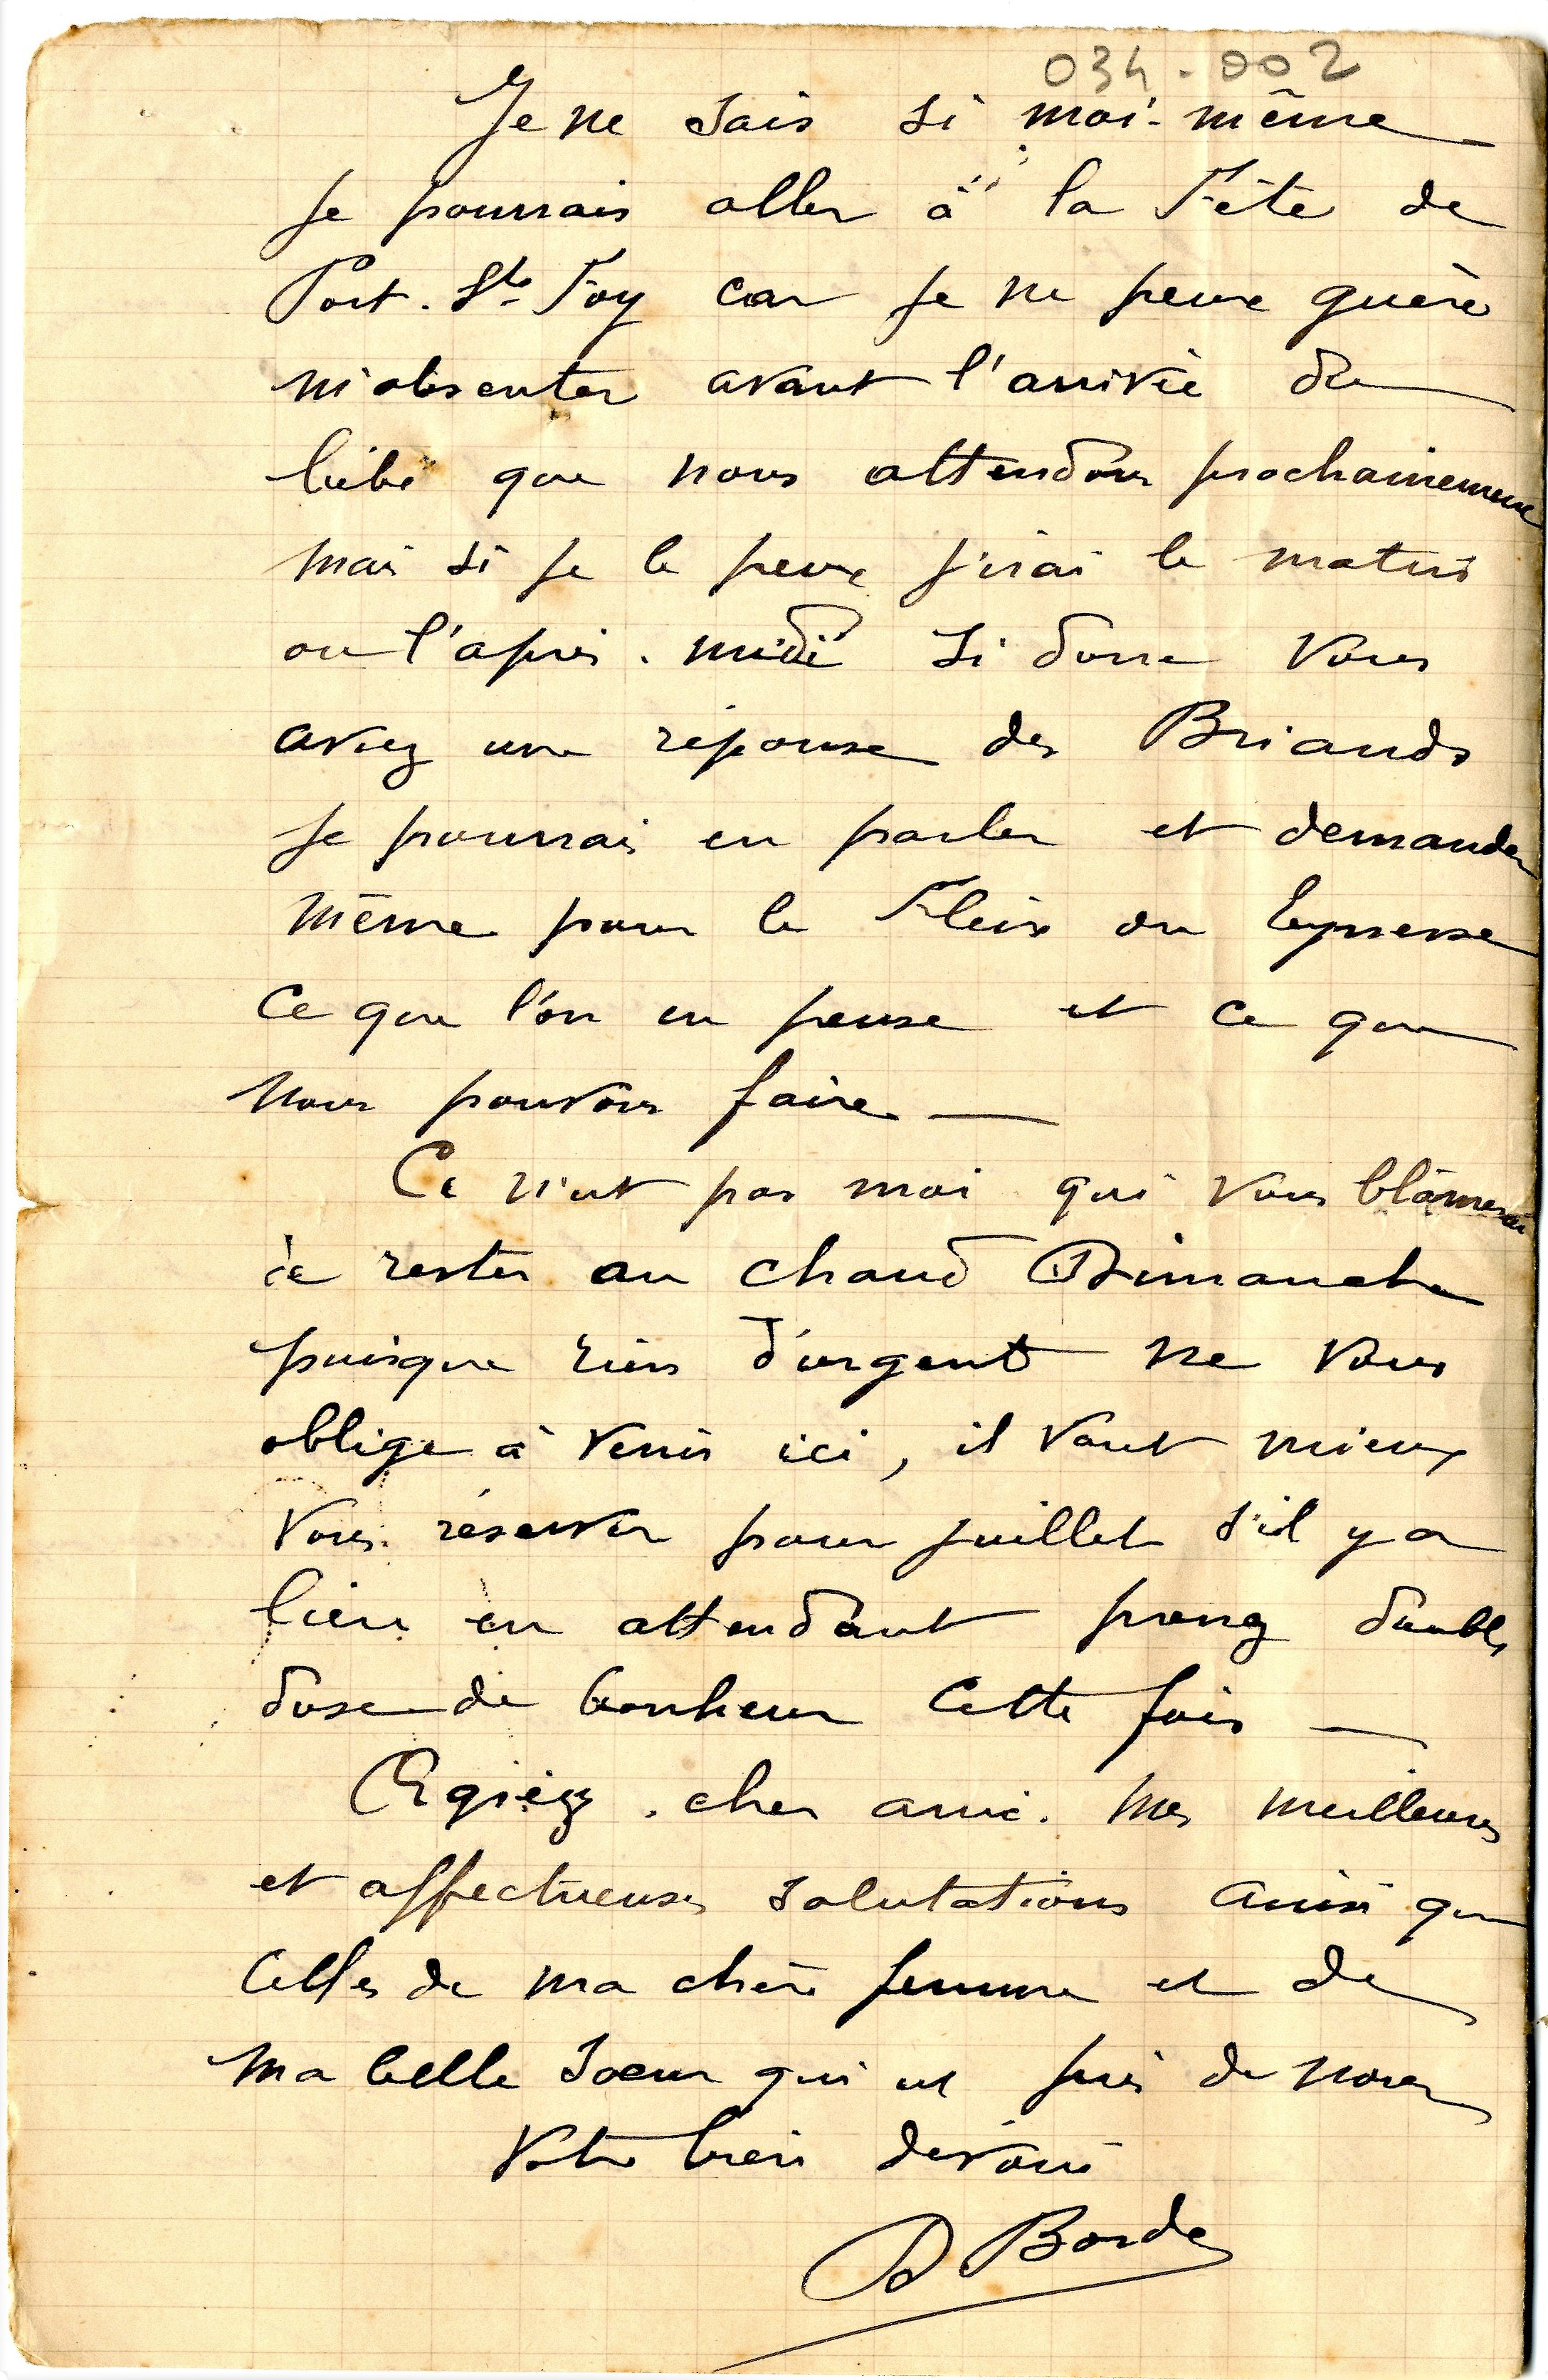 034-002
Je ne sais si moi-même
je pourrais aller à la Fête de
Port-Ste Foy car je ne peux guère
m'absenter avant l'arrivée du
bébé que nous attendons prochainement
mais si je le peux j'irai le matin
ou l'après-midi si donc vous
aviez une réponse des Briands
je pourrais en parler et demander
même pour le Fleix ou Eynesse
ce que l'on en pense et ce que
nous pouvons faire —
Ce n'est pas moi qui vous blâmerai
de rester au chaud Dimanche
puisque rien d'urgent ne vous
oblige à venir ici, il vaut mieux
vous réserver pour juillet s'il y a
lieu en attendant prenez double
dose de bonheur cette fois —
Agréez, cher ami, mes meilleures
et affectueuses salutations ainsi que
celles de ma chère femme et de
ma belle soeur qui est près de nous
Votre bien dévoué
D Borde